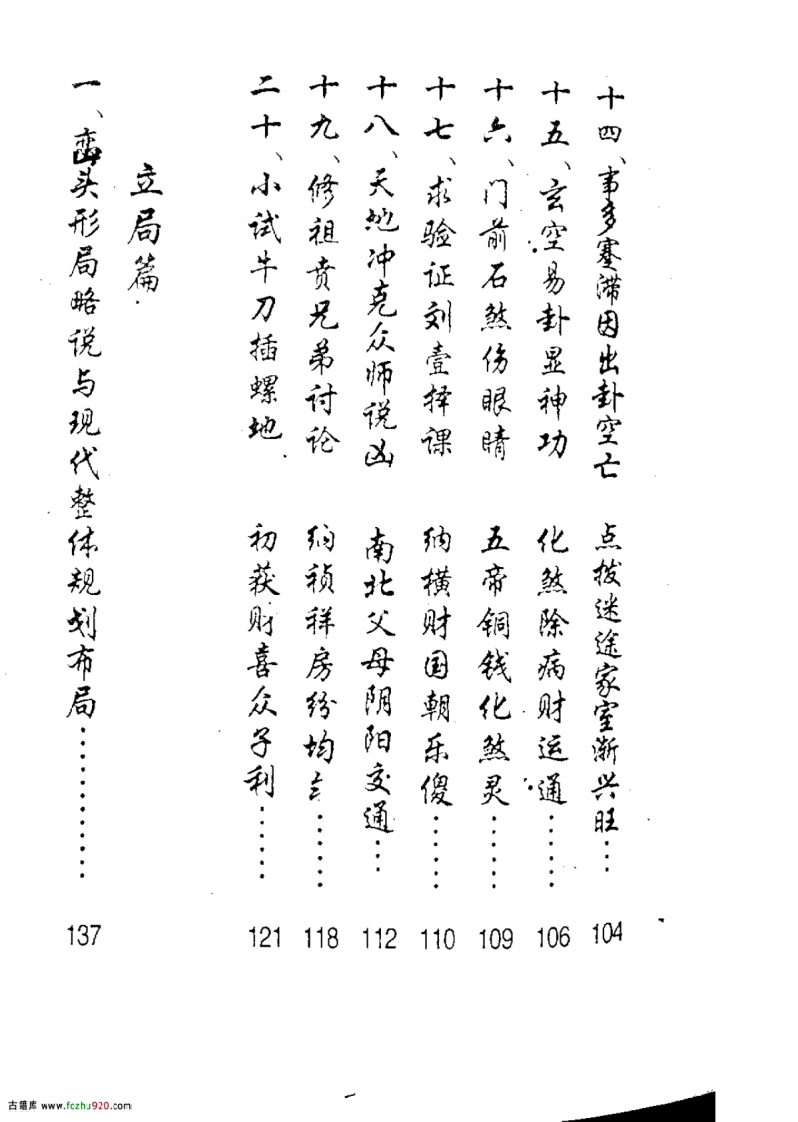 十四、事多蹇滞因出卦空亡　点拨迷途家室渐兴旺…104
十五、玄空易卦显神功　化煞除病财运通……106
十六、门前石煞伤眼睛　五帝铜钱化煞灵……109
十七、求验证刘壹择课　纳横财国朝乐傻……110
十八、天地冲克众师说凶　南北父母阴阳交通…112
十九、修祖贲兄弟讨论　纳祯祥房纷均……118
二十、小试牛刀插螺地　初获财喜众子利……121
立局篇
一、峦头形局略说与现代整体规划布局…………137
古籍库 www.fczhu920.com